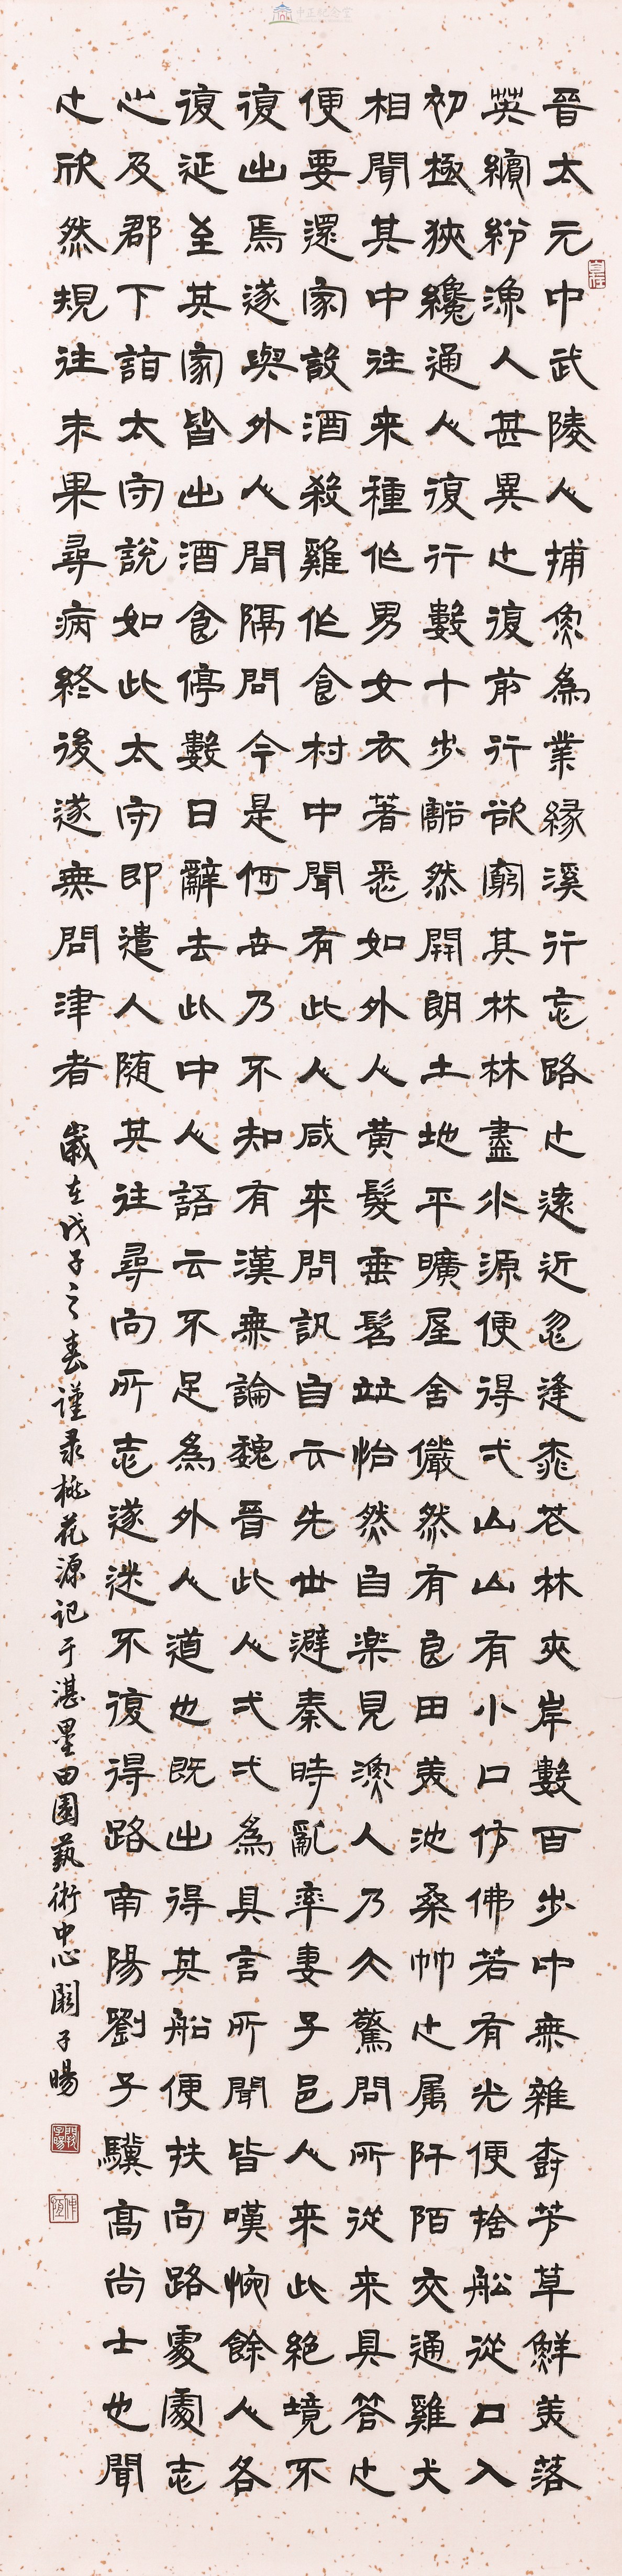 中正紀念堂
晉太元中武陵人捕魚為業緣溪行忘路之遠近忽逢桃花林夾岸數百步中無雜樹芳草鮮美落
英繽紛漁人甚異之復前行欲窮其林林盡水源便得弌山山有小口仿佛若有光便捨船從口入
初極狹纔通人復行數十步豁然開朗土地平曠屋舍儼然有良田美池桑竹之屬阡陌交通雞犬
相聞其中往来種作男女衣著悉如外人黃髮垂髫並怡然自樂見漁人乃大驚問所從来具答之
便要還家設酒殺雞作食村中聞有此人咸来問訊自云先世避秦時亂率妻子邑人来此絕境不
復出焉遂與外人間隔問今是何世乃不知有漢無論魏晉此人弌弌為具言所聞皆嘆惋餘人各
復延至其家皆出酒食停數日辭去此中人語云不足為外人道也既出得其船便扶向路處處志
之及郡下詣太守說如此太守即遣人隨其往尋向所志遂迷不復得路南陽劉子驥高尚士也聞
之欣然規往未果尋病終後遂無問津者 歲在戊子之春謹录桃花源記于湛墨田園藝術中心闕子暘